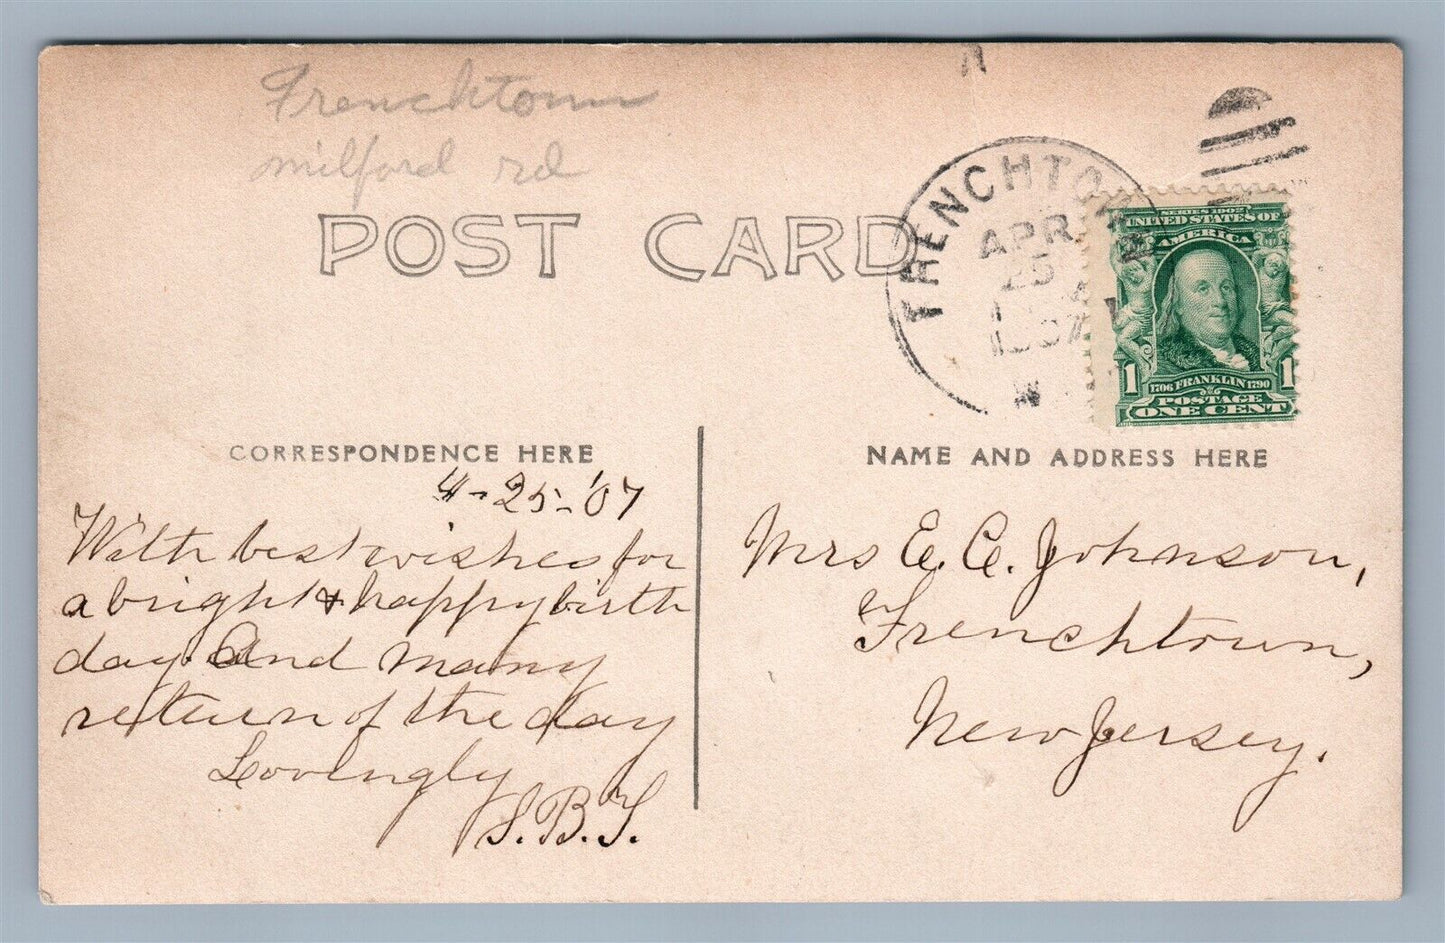 Frenchtown
milford rd
POST CARD
FRENCHTOWN
APR
25
1907
SERIES 1902
UNITED STATES OF
AMERICA
1706 FRANKLIN 1790
1 1
POSTAGE
ONE CENT
CORRESPONDENCE HERE
4-25-'07
With best wishes for
a bright & happy birth
day. And many
return of the day
Lovingly
S.B.S.
NAME AND ADDRESS HERE
Mrs E. C. Johnson,
Frenchtown,
New Jersey.